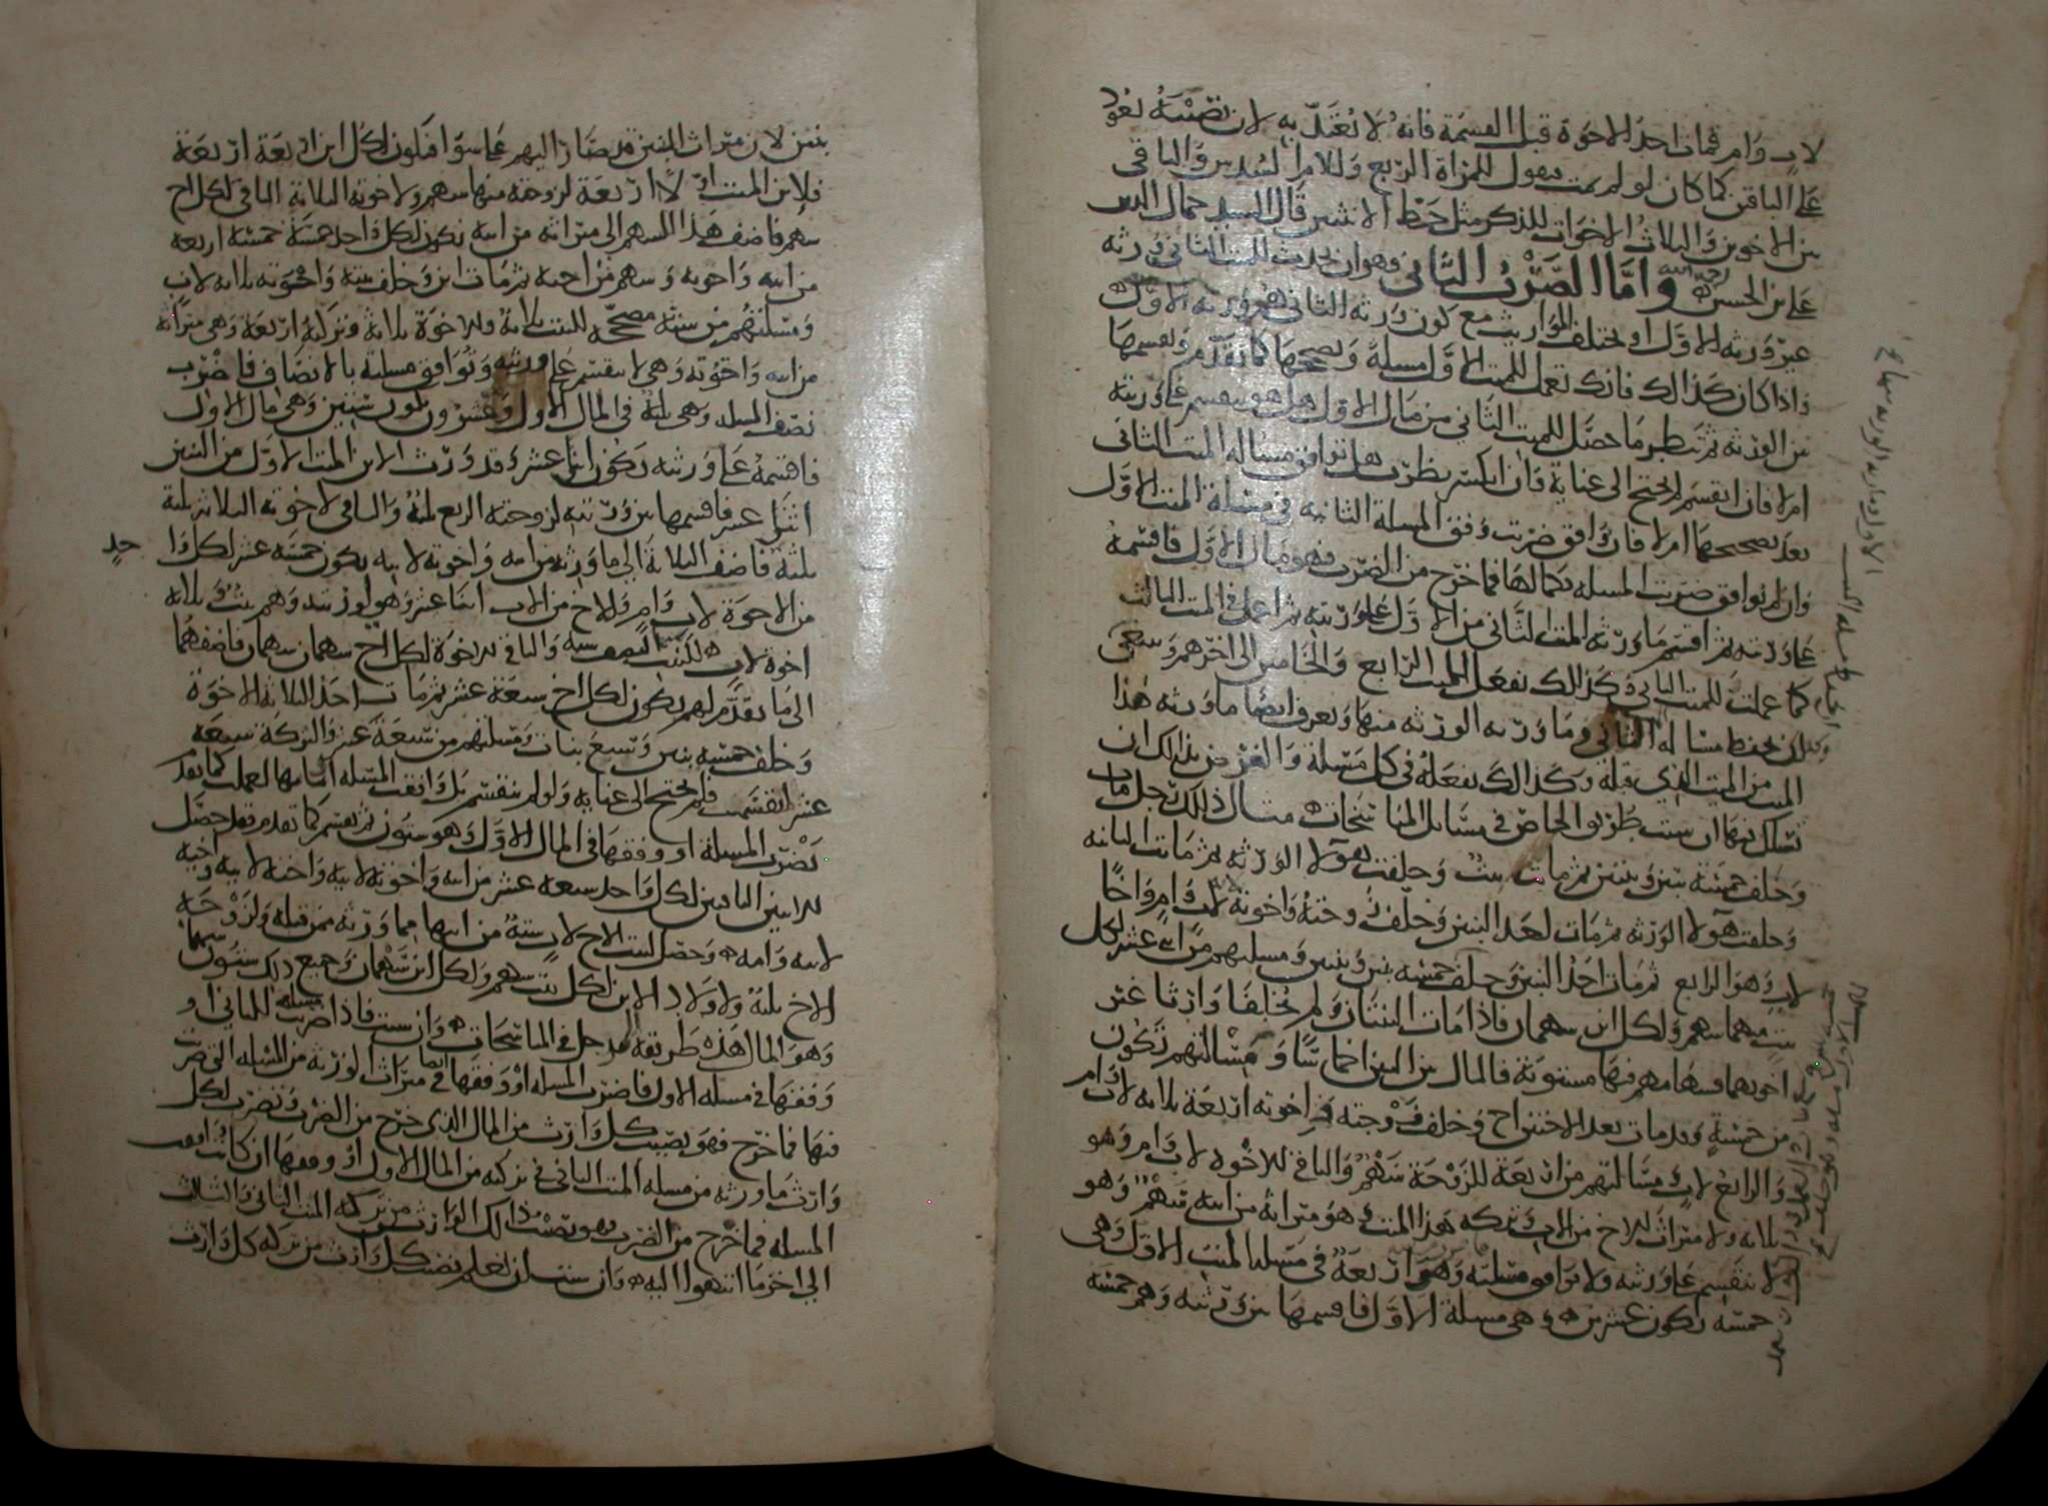 لاب وام فمات احد الاخوة قبل القسمة فانه لا يعتد به لان نصيبه يعود
على الباقين كما كان لو لم يمت فيقول للمراة الربع وللام السدس والباقي
بين الاخوين والثلاث الاخوات للذكر مثل حظ الانثيين قال السيد جمال الدين
علي بن الحسين رحمه الله واما الضرب الثاني فهو ان يحدث الميت الثاني ورثة
غير ورثة الاول او يختلف المواريث مع كون ورثة الثاني هم ورثة الاول
واذا كان كذالك فانك تعمل للميت الاول مسلة وتصححها كما تقدم وتقسمها
بين الورثة ثم تنظر ما حصل للميت الثاني من مال الاول هل هو ينقسم على ورثته
ام لا فان انقسم لم يحتج الى عناية وان انكسر نظرت هل توافق مسالة الميت الثاني
بعد تصحيحها ام لا فان وافق ضربت وفق المسلة الثانية في مسلة الميت الاول
وان لم توافق ضربت المسلة بكمالها فما خرج من الضرب فهو مال الاول فاقسمه
على ورثته ثم اقسم ما ورثه الميت الثاني من الاول على ورثته ثم اعمل في الميت الثالث
كما عملت للميت الثاني وكذالك تفعل للميت الرابع والخامس الى اخرهم وينبغي
ان تحفظ مسالة الثاني وما ورثه الورثة منها وتعرف ايضا ما ورثه هذا
الميت من الميت الذي قبله وكذالك تفعله في كل مسلة والغرض بذالك ان
تسلك فيها ان شئت طريق الخاص في مسائل المناسخات مثال ذلك رجل مات
وخلف خمسة بنين وبنتين ثم ماتت بنت وخلفت هولا الورثة ثم ماتت الثانية
وخلفت هولا الورثة ثم مات احد البنين وخلف زوجة واخوته لاب وام واخا
لاب وهو الرابع ثم مات احد البنين وخلف خمسة بنين وبنتين ومسلتهم من اثني عشر لكل
بنت منهما سهم ولكل ابن سهمان فاذا ماتت البنتان ولم تخلفا وارثا غير
اخوتهما فسهامهم فيها مستوية فالمال بين البنين اخماسا ومسالتهم تكون
من خمسة وقد مات بعد الاختين اخ وخلف زوجته واخوته اربعة ثلاثة لاب وام
والرابع لاب مسالتهم من اربعة للزوجة سهم والباقي للاخوة لاب وام وهو
ثلاثة ولا ميراث للاخ من الاب وتركة هذا الميت هو ميراثه من ابيه سهم وهو
لا ينقسم على ورثته ولا توافق مسلته وهو اربعة في مسلة الميت الاول وهي
خمسة تكون عشرين وهي مسلة الاول فاقسمها بين ورثته وهم خمسة
بنين لان ميراث البنتين قد صار اليهم على سوا فيكون لكل ابن اربعة اربعة
فلابن الميت اولا اربعة لزوجته منها سهم ولاخوته الثلاثة الباقي لكل اخ
سهم فاضف هذا السهم الى ميراثه من ابيه تكون لكل واحد خمسة خمسة اربعة
من ابيه واخوته وسهم من اخيه ثم مات ابن وخلف بنته واخوته ثلاثة لاب
ومسلتهم من ستة مصححة للبنت ثلاثة وللاخوة ثلاثة وتركته اربعة وهي ميراثه
من ابيه واخوته وهي لا تنقسم على ورثته وتوافق مسلته بالانصاف فاضرب
نصف المسلة وهي ثلثة في المال الاول وعشرون تكون ستين وهي مال الاول
فاقسمه على ورثته تكون اثنا عشر وقد ورث الابن الميت الاول من البنين
اثنا عشر فاقسمها بين ورثته لزوجته الربع ثلثة والباقي لاخوته الثلاثة ثلثة
ثلثة فاضف الثلاثة الى ما ورثه من ابيه واخوته لابيه تكون خمسة عشر لكل وا
حد
من الاخوة لاب وام وللاخ من الاب اثنا عشر وهي لورثته وهم بنت وثلاثة
اخوة لاب للبنت النصف ستة والباقي للاخوة لكل اخ سهمان سهمان فاضفهما
الى ما تقدم لهم يكون لكل اخ سبعة عشر ثم مات احد الثلاثة الاخوة
وخلف خمسة بنين وتسع بنات ومسلتهم من تسعة عشر والتركة سبعة
عشر انقسمت فلم يحتج الى عناية ولو لم تنقسم بل وافقت المسلة لعملت كما تقدم
بضرب المسلة او وفقها في المال الاول وهو ستون ثم تقسم كما تقدم فقد حصل
للابنين الباقيين لكل واحد سبعة عشر من ابيه واخوته لابيه واخته لابيه واخيه
لابيه وامه وحصل لبنت الاخ لاب ستة من ابيها مما ورثه ممن قبله ولزوجة
الاخ ثلثة ولاولاد الابن لكل بنت سهم ولكل ابن سهمان وجميع ذلك ستون سهما
وهو المال هذه طريقة المدخل في المناسخات وان شئت فاذا ضربت مسلة الثاني او
وفقها في مسلة الاول فاضرب المسلة او وفقها ايضا في ميراث الورثة من المسلة التي ضربت
فيها فما خرج فهو نصيب كل وارث من المال الذي خرج من الضرب وتضرب لكل
وارث ما ورثه من مسلة الميت الثاني في تركته من المال الاول او وفقها ان كانت وافقت
المسلة فما خرج من الضرب فهو نصيب ذالك الوارث من تركة الميت الثاني والثالث
الى اخر ما انتهوا اليه وان شئت ان تعلم نصيب كل وارث من تركة كل وارث